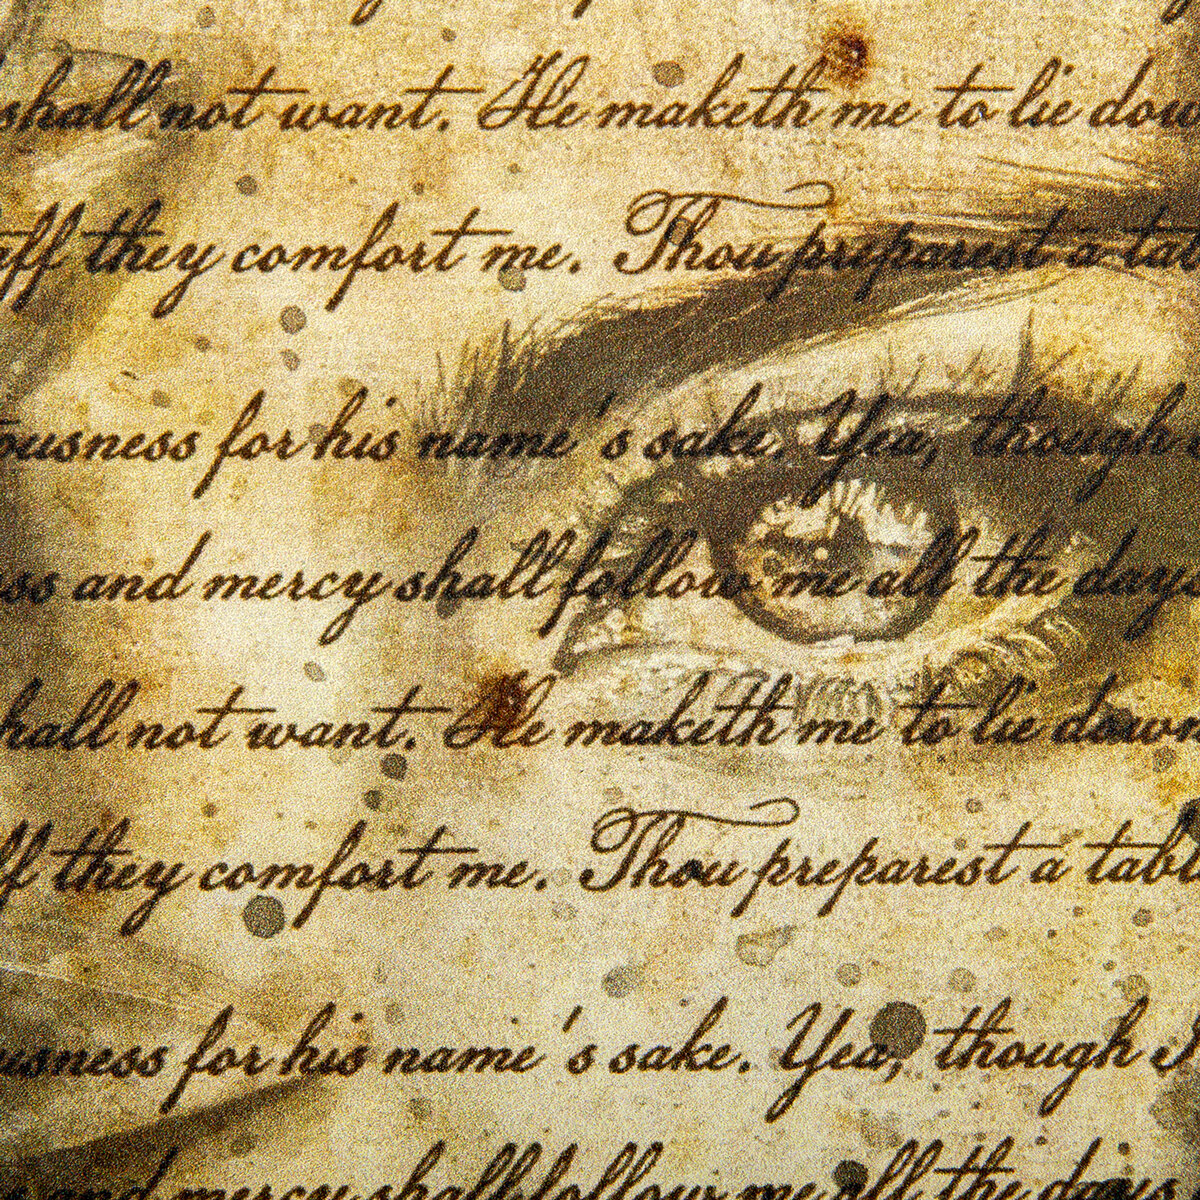 shall not want. He maketh me to lie dow
aff they comfort me. Thou preparest a tab
ousness for his name's sake. Yea, though
ss and mercy shall follow me all the days
hall not want. He maketh me to lie down
ff they comfort me. Thou preparest a tabl
usness for his name's sake. Yea, though I
and mercy shall follow me all the days